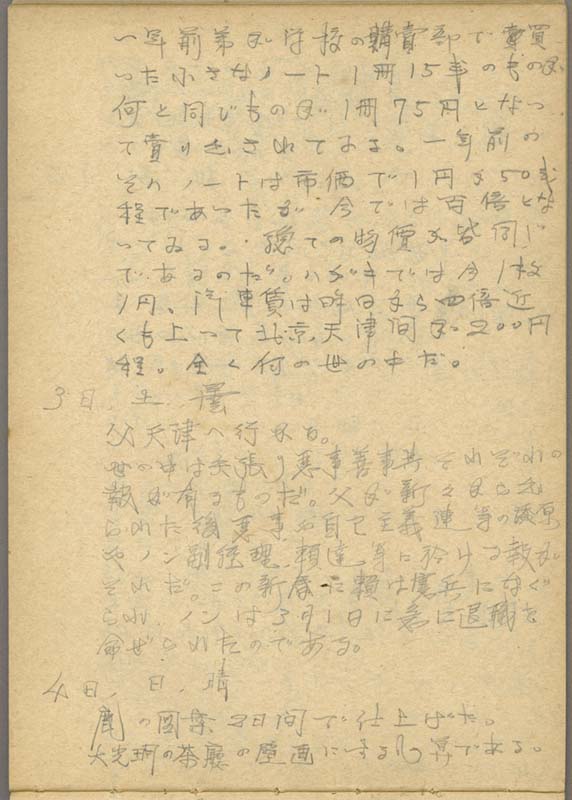 一年前弟が学校の購買部で買
った小さなノート1冊15銭のものが
何と同じものが1冊75円となっ
て賣り出されてゐる。一年前の
そのノートは市価で1円か50銭
程であったが今では百倍とな
ってゐる。総ての物價が皆同じ
であるのだ。ハガキでは今1枚
1円、汽車賃は昨日から四倍近
くも上って北京、天津间が200円
程。全く何の世の中だ。
3日、土、曇
父天津へ行かる。
世の中は矢張り悪事善事共それぞれの
報が有るものだ。父が新々から
られた後悪事や自己主義 連等の
ノン副経理、頼達等に於ける報が
それだ。この新 に頼は憲兵になぐ
られ、ノンは3月1日に急に退職を
命ぜられたのである。
4日、日、晴
鹿の図案2日间で仕上げた。
大光 の茶廳の壁画にする 算である。